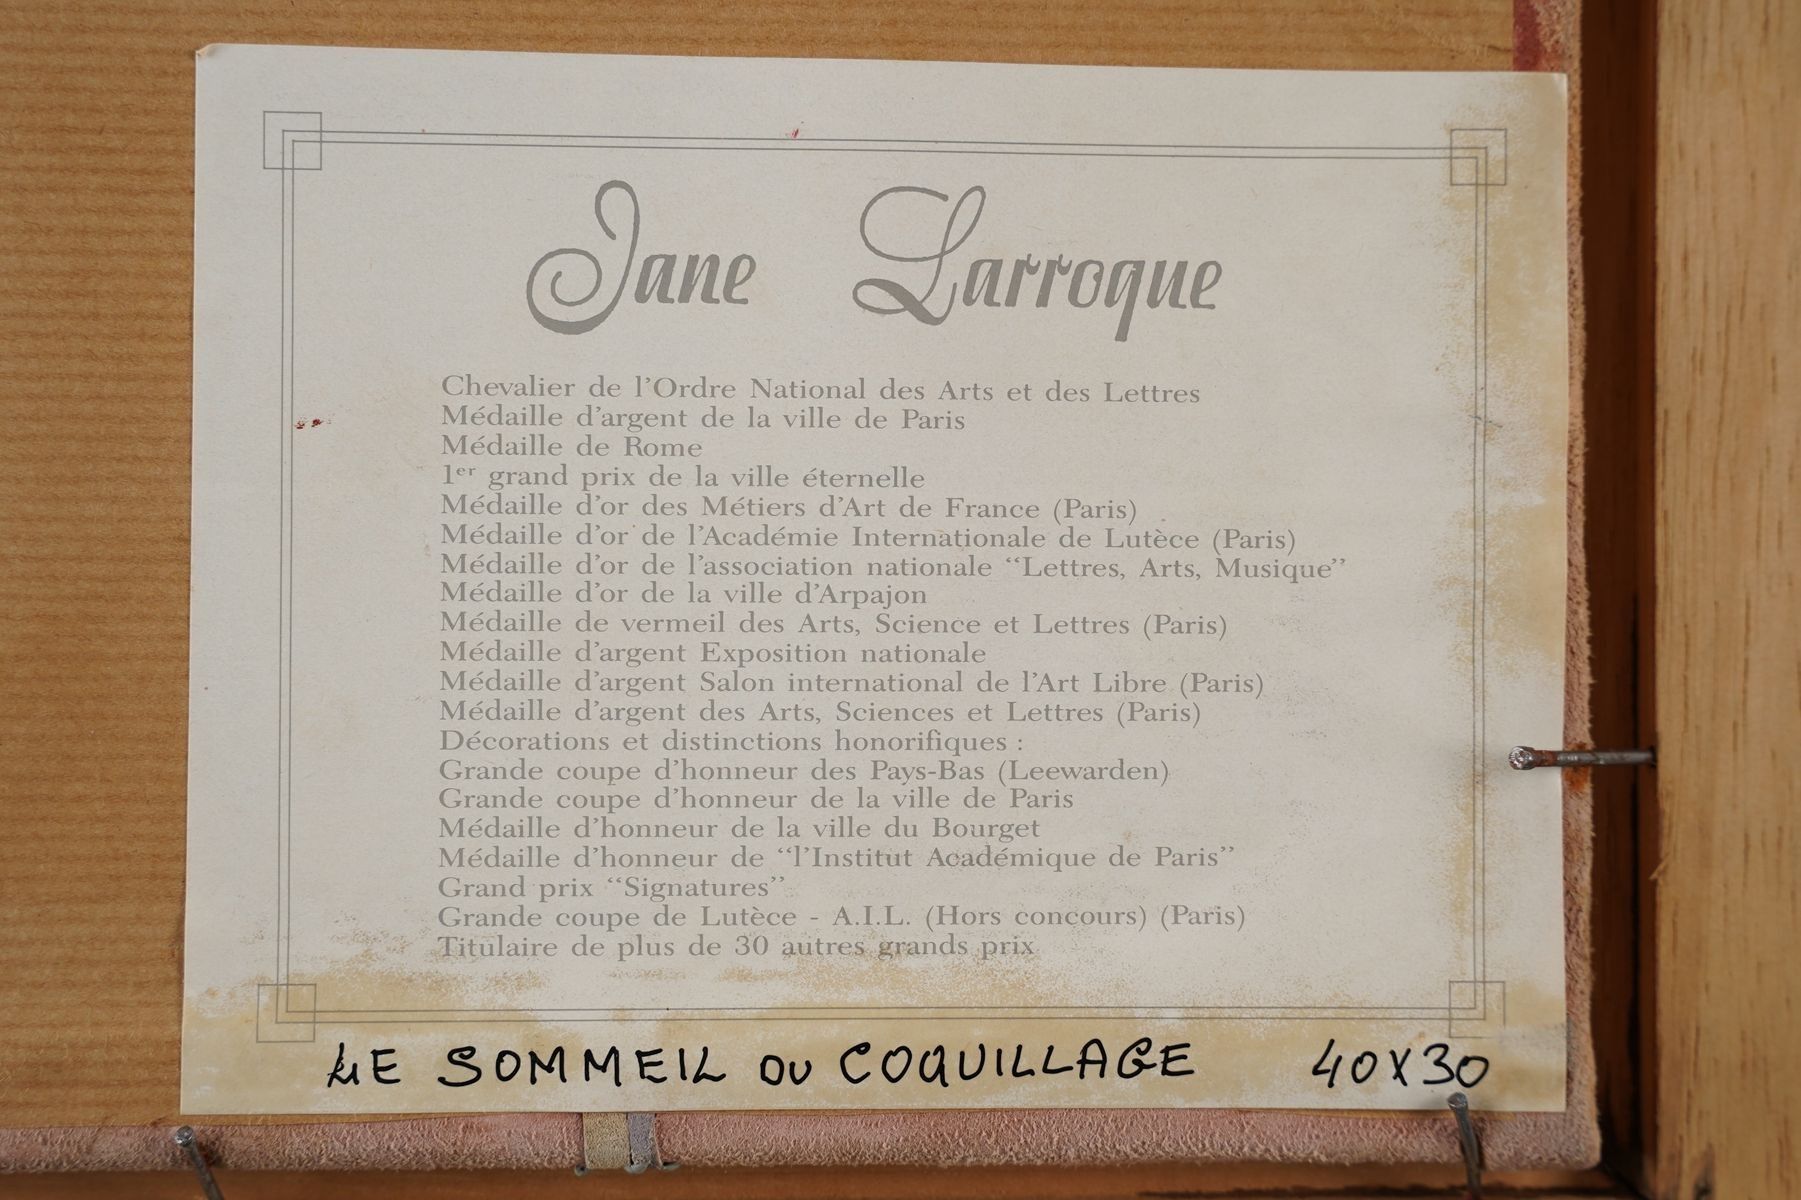 Jane Larroque
Chevalier de l'Ordre National des Arts et des Lettres
Médaille d'argent de la ville de Paris
Médaille de Rome
1er grand prix de la ville éternelle
Médaille d'or des Métiers d'Art de France (Paris)
Médaille d'or de l'Académie Internationale de Lutèce (Paris)
Médaille d'or de l'association nationale “Lettres, Arts, Musique”
Médaille d'or de la ville d'Arpajon
Médaille de vermeil des Arts, Science et Lettres (Paris)
Médaille d'argent Exposition nationale
Médaille d'argent Salon international de l'Art Libre (Paris)
Médaille d'argent des Arts, Sciences et Lettres (Paris)
Décorations et distinctions honorifiques :
Grande coupe d'honneur des Pays-Bas (Leewarden)
Grande coupe d'honneur de la ville de Paris
Médaille d'honneur de la ville du Bourget
Médaille d'honneur de “l'Institut Académique de Paris”
Grand prix “Signatures”
Grande coupe de Lutèce - A.I.L. (Hors concours) (Paris)
Titulaire de plus de 30 autres grands prix
LE SOMMEIL DU COQUILLAGE 40X30